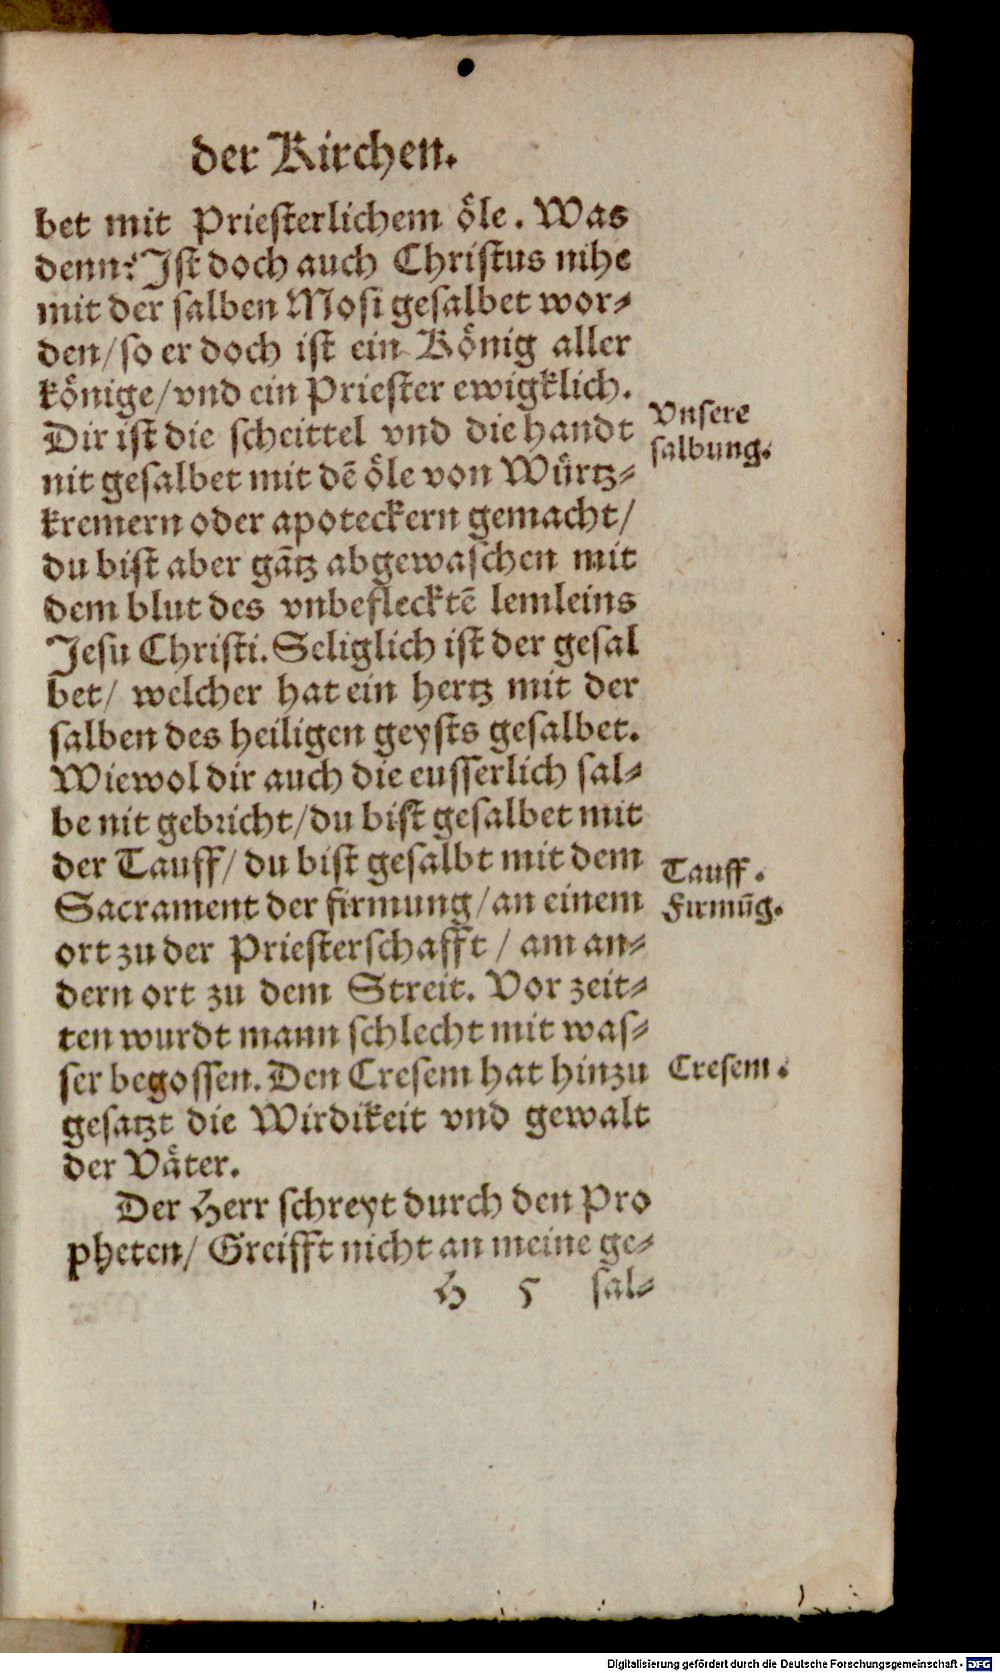 der Kirchen.
bet mit Priesterlichem öle. Was
denn? Ist doch auch Christus nihe
mit der salben Mosi gesalbet wor-
den/ so er doch ist ein König aller
könige/ vnd ein Priester ewigklich.
Dir ist die scheittel vnd die handt
nit gesalbet mit dē öle von Würtz-
kremern oder apoteckern gemacht/
du bist aber gātz abgewaschen mit
dem blut des vnbeflecktē lemleins
Jesu Christi. Seliglich ist der gesal
bet/ welcher hat ein hertz mit der
salben des heiligen geysts gesalbet.
Wiewol dir auch die eusserlich sal-
be nit gebricht/ du bist gesalbet mit
der Tauff/ du bist gesalbt mit dem
Sacrament der firmung/ an einem
ort zu der Priesterschafft/ am an-
dern ort zu dem Streit. Vor zeit-
ten wurdt mann schlecht mit was-
ser begossen. Den Cresem hat hinzu
gesatzt die Wirdikeit vnd gewalt
der Väter.
Der Herr schreyt durch den Pro
pheten/ Greifft nicht an meine ge-
H 5 sal-
Vnsere
salbung.
Tauff.
Firmūg.
Cresem.
Digitalisierung gefördert durch die Deutsche Forschungsgemeinschaft - DFG